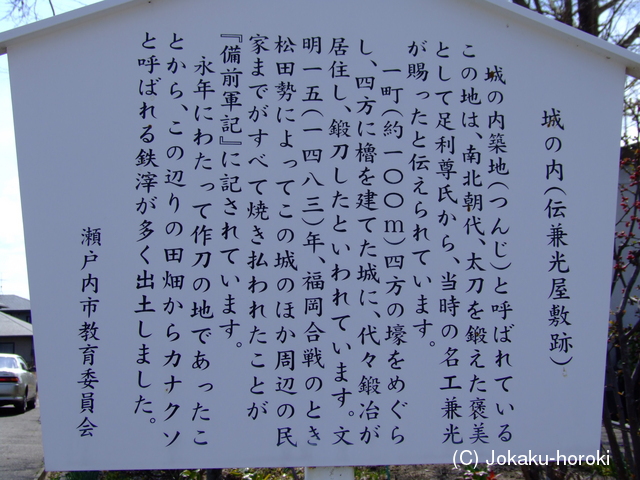 城の内(伝兼光屋敷跡)
城の内築地(つんじ)と呼ばれている
この地は、南北朝代、太刀を鍛えた褒美
として足利尊氏から、当時の名工兼光
が賜ったと伝えられています。
一町(約一〇〇m)四方の壕をめぐら
し、四方に櫓を建てた城に、代々鍛冶が
居住し、鍛刀したといわれています。文
明一五(一四八三)年、福岡合戦のとき
松田勢によってこの城のほか周辺の民
家までがすべて焼き払われたことが
『備前軍記』に記されています。
永年にわたって作刀の地であったこ
とから、この辺りの田畑からカナクソ
と呼ばれる鉄滓が多く出土しました。
瀬戸内市教育委員会
(C) Jokaku-horoki